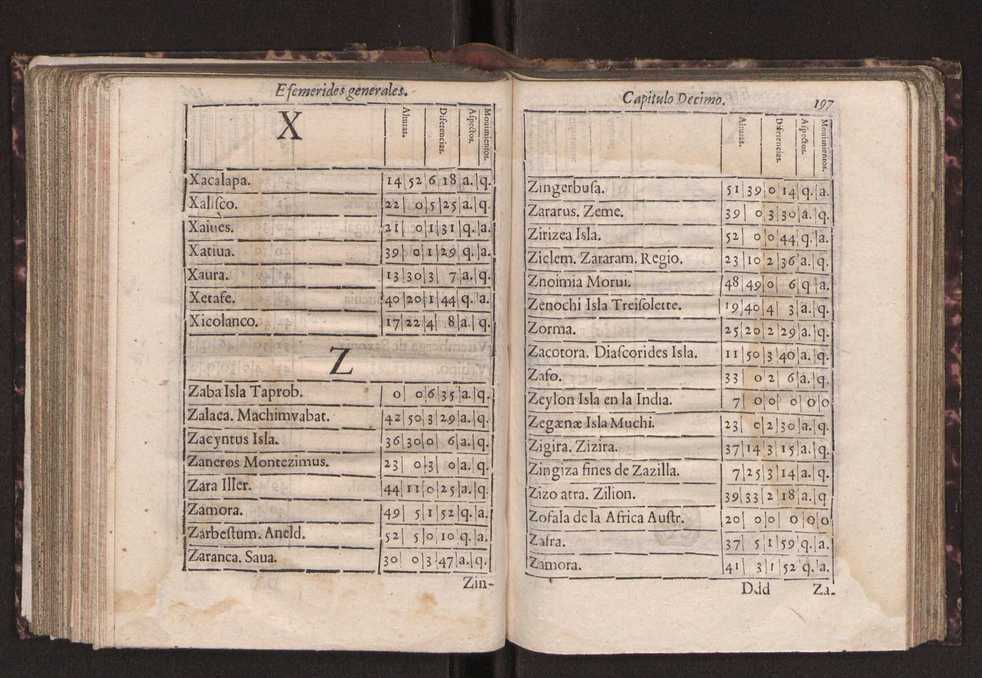 Efemerides generales.
X
Alturas. Diferencias. Aspectos. Mouimientos.
Xacalapa. 14 52 6 18 a. q.
Xalisco. 22 0 5 25 a. q.
Xaiues. 21 0 1 31 q. a.
Xatiua. 39 0 1 29 q. a.
Xaura. 13 30 3 7 a. q.
Xetafe. 40 20 1 44 q. a.
Xicolanco. 17 22 4 8 a. q.
Z
Zaba Isla Taprob. 0 0 6 35 a. q.
Zalaca. Machimvabat. 42 50 3 29 a. q.
Zacyntus Isla. 36 30 0 6 a. q.
Zaneros Montezimus. 23 0 3 0 a. q.
Zara Iller. 44 11 0 25 a. q.
Zamora. 49 5 1 52 q. a.
Zarbestum. Aneld. 52 5 0 10 q. a.
Zaranca. Saua. 30 0 3 47 a. q.
Zin-
Capitulo Decimo. 197
Alturas. Diferencias. Aspectos. Mouimientos.
Zingerbusa. 51 39 0 14 q. a.
Zararus. Zeme. 39 0 3 30 a. q.
Zirizea Isla. 52 0 0 44 q. a.
Ziclem. Zararam. Regio. 23 10 2 36 a. q.
Znoimia Morui. 48 49 0 6 q a.
Zenochi Isla Treisolette. 19 40 4 3 a. q.
Zorma. 25 20 2 29 a. q.
Zacotora. Diascorides Isla. 11 50 3 40 a. q.
Zafo. 33 0 2 6 a. q.
Zeylon Isla en la India. 7 0 0 0 0 0
Zegænæ Isla Muchi. 23 0 2 30 a. q.
Zigira. Zizira. 37 14 3 15 a. q.
Zingiza fines de Zazilla. 7 25 3 14 a. q.
Zizo atra. Zilion. 39 33 2 18 a. q
Zofala de la Africa Austr. 20 0 0 0 0 0
Zafra. 37 5 1 59 q. a.
Zamora. 41 3 1 52 q. a.
Ddd Za-